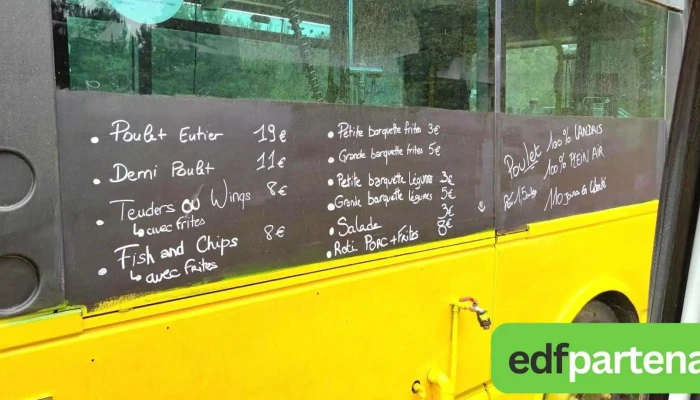 • Poulet Entier 19€
• Demi Poulet 11€
• Tenders ou Wings 8€
↳ avec frites
• Fish and Chips 8€
↳ avec Frites
• Petite barquette frites 3€
• Grande barquette frites 5€
• Petite barquette légumes 3€
• Grande barquette légumes 5€
• Salade 3€
• Roti Porc + Frites 8€
Poulet 100% LANDAIS
100% PLEIN AIR
110 jours en liberté
edfpartena